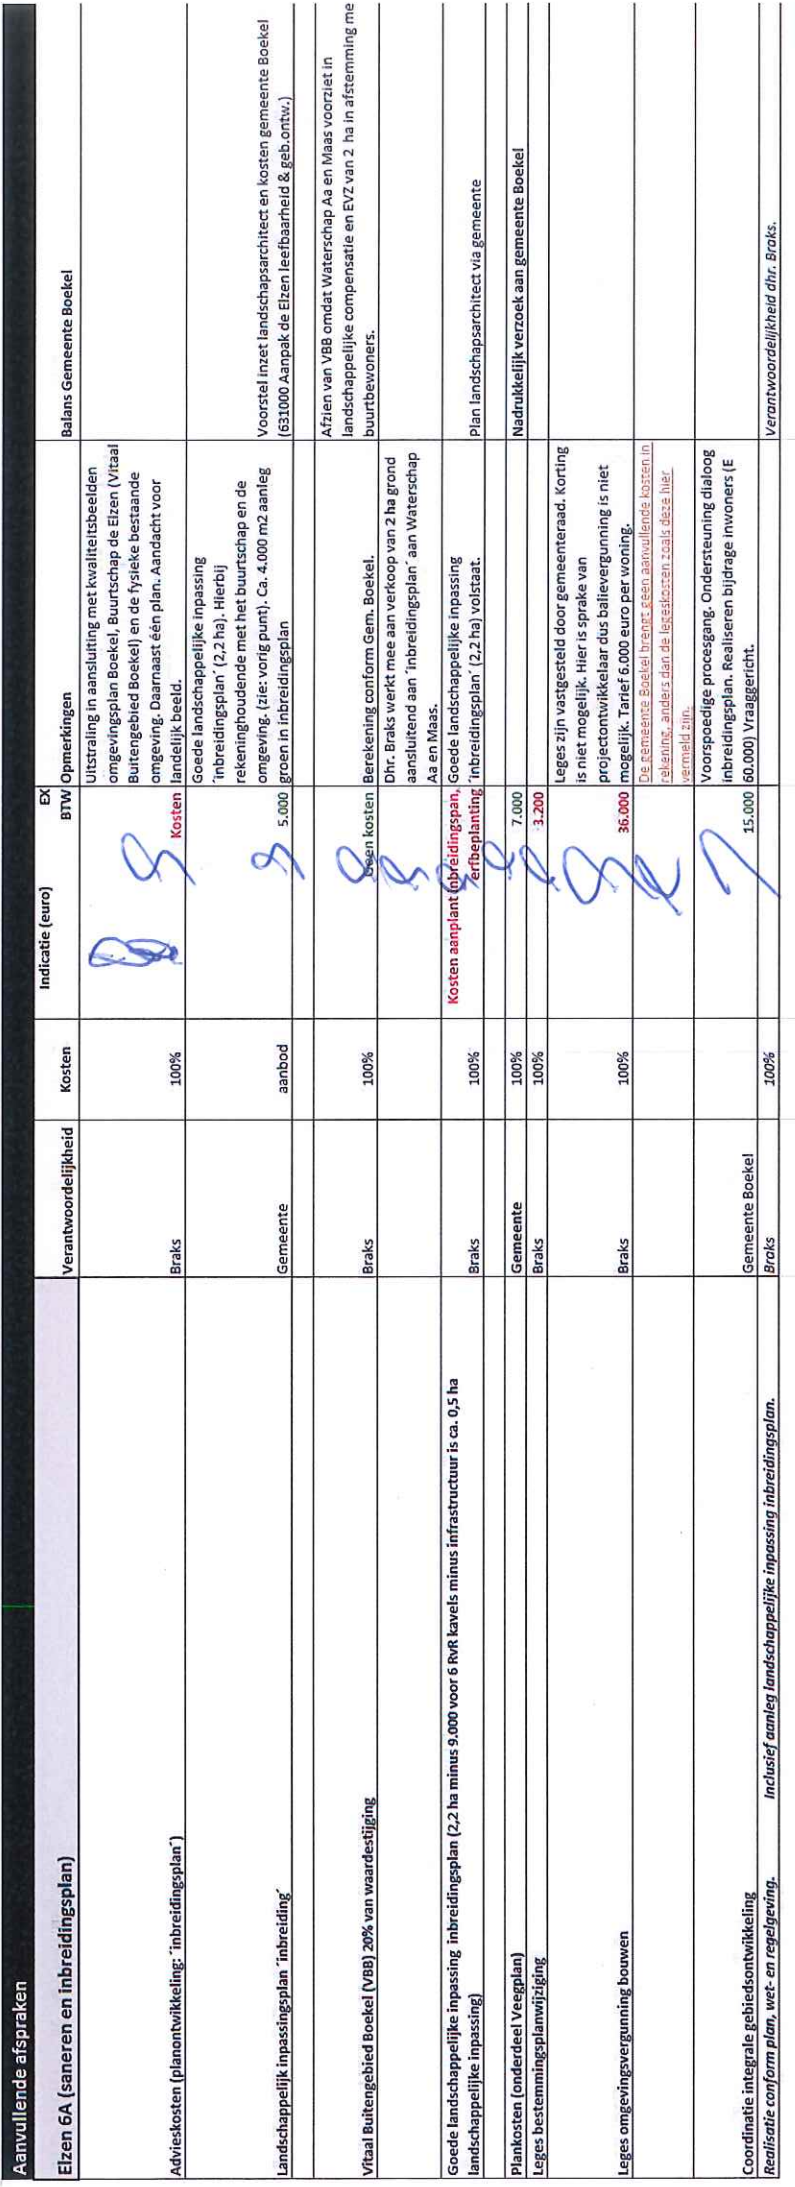 Aanvullende afspraken
Elzen 6A (saneren en inbreidingsplan)
Verantwoordelijkheid
Kosten
Indicatie (euro)
EX
BTW
Opmerkingen
Balans Gemeente Boekel
Advieskosten (planontwikkeling: ´inbreidingsplan´)
Braks
100%
Kosten
Uitstraling in aansluiting met kwaliteitsbeelden
omgevingsplan Boekel, Buurtschap de Elzen (Vitaal
Buitengebied Boekel) en de fysieke bestaande
omgeving. Daarnaast één plan. Aandacht voor
landelijk beeld.
Landschappelijk inpassingsplan ´inbreiding´
Gemeente
aanbod
5.000
Goede landschappelijke inpassing
´inbreidingsplan´ (2,2 ha). Hierbij
rekeninghoudende met het buurtschap en de
omgeving. (zie: vorig punt). Ca. 4.000 m2 aanleg
groen in inbreidingsplan
Voorstel inzet landschapsarchitect en kosten gemeente Boekel
(631000 Aanpak de Elzen leefbaarheid & geb.ontw.)
Vitaal Buitengebied Boekel (VBB) 20% van waardestijging
Braks
100%
Geen kosten
Berekening conform Gem. Boekel.
Afzien van VBB omdat Waterschap Aa en Maas voorziet in
landschappelijke compensatie en EVZ van 2 ha in afstemming me
buurtbewoners.
Dhr. Braks werkt mee aan verkoop van 2 ha grond
aansluitend aan ´inbreidingsplan´ aan Waterschap
Aa en Maas.
Goede landschappelijke inpassing inbreidingsplan (2,2 ha minus 9.000 voor 6 RvR kavels minus infrastructuur is ca. 0,5 ha
landschappelijke inpassing)
Braks
100%
Kosten aanplant inbreidingspan,
erfbeplanting
Goede landschappelijke inpassing
´inbreidingsplan´ (2,2 ha) volstaat.
Plan landschapsarchitect via gemeente
Plankosten (onderdeel Veegplan)
Gemeente
100%
7.000
Nadrukkelijk verzoek aan gemeente Boekel
Leges bestemmingsplanwijziging
Braks
100%
3.200
Leges omgevingsvergunning bouwen
Braks
100%
36.000
Leges zijn vastgesteld door gemeenteraad. Korting
is niet mogelijk. Hier is sprake van
projectontwikkelaar dus balievergunning is niet
mogelijk. Tarief 6.000 euro per woning.
De gemeente Boekel brengt geen aanvullende kosten in
rekening, anders dan de legeskosten zoals deze hier
vermeld zijn.
Coordinatie integrale gebiedsontwikkeling
Gemeente Boekel
15.000
Voorspoedige procesgang. Ondersteuning dialoog
inbreidingsplan. Realiseren bijdrage inwoners (E
60.000) Vraaggericht.
Realisatie conform plan, wet- en regelgeving.
Inclusief aanleg landschappelijke inpassing inbreidingsplan.
Braks
100%
Verantwoordelijkheid dhr. Braks.